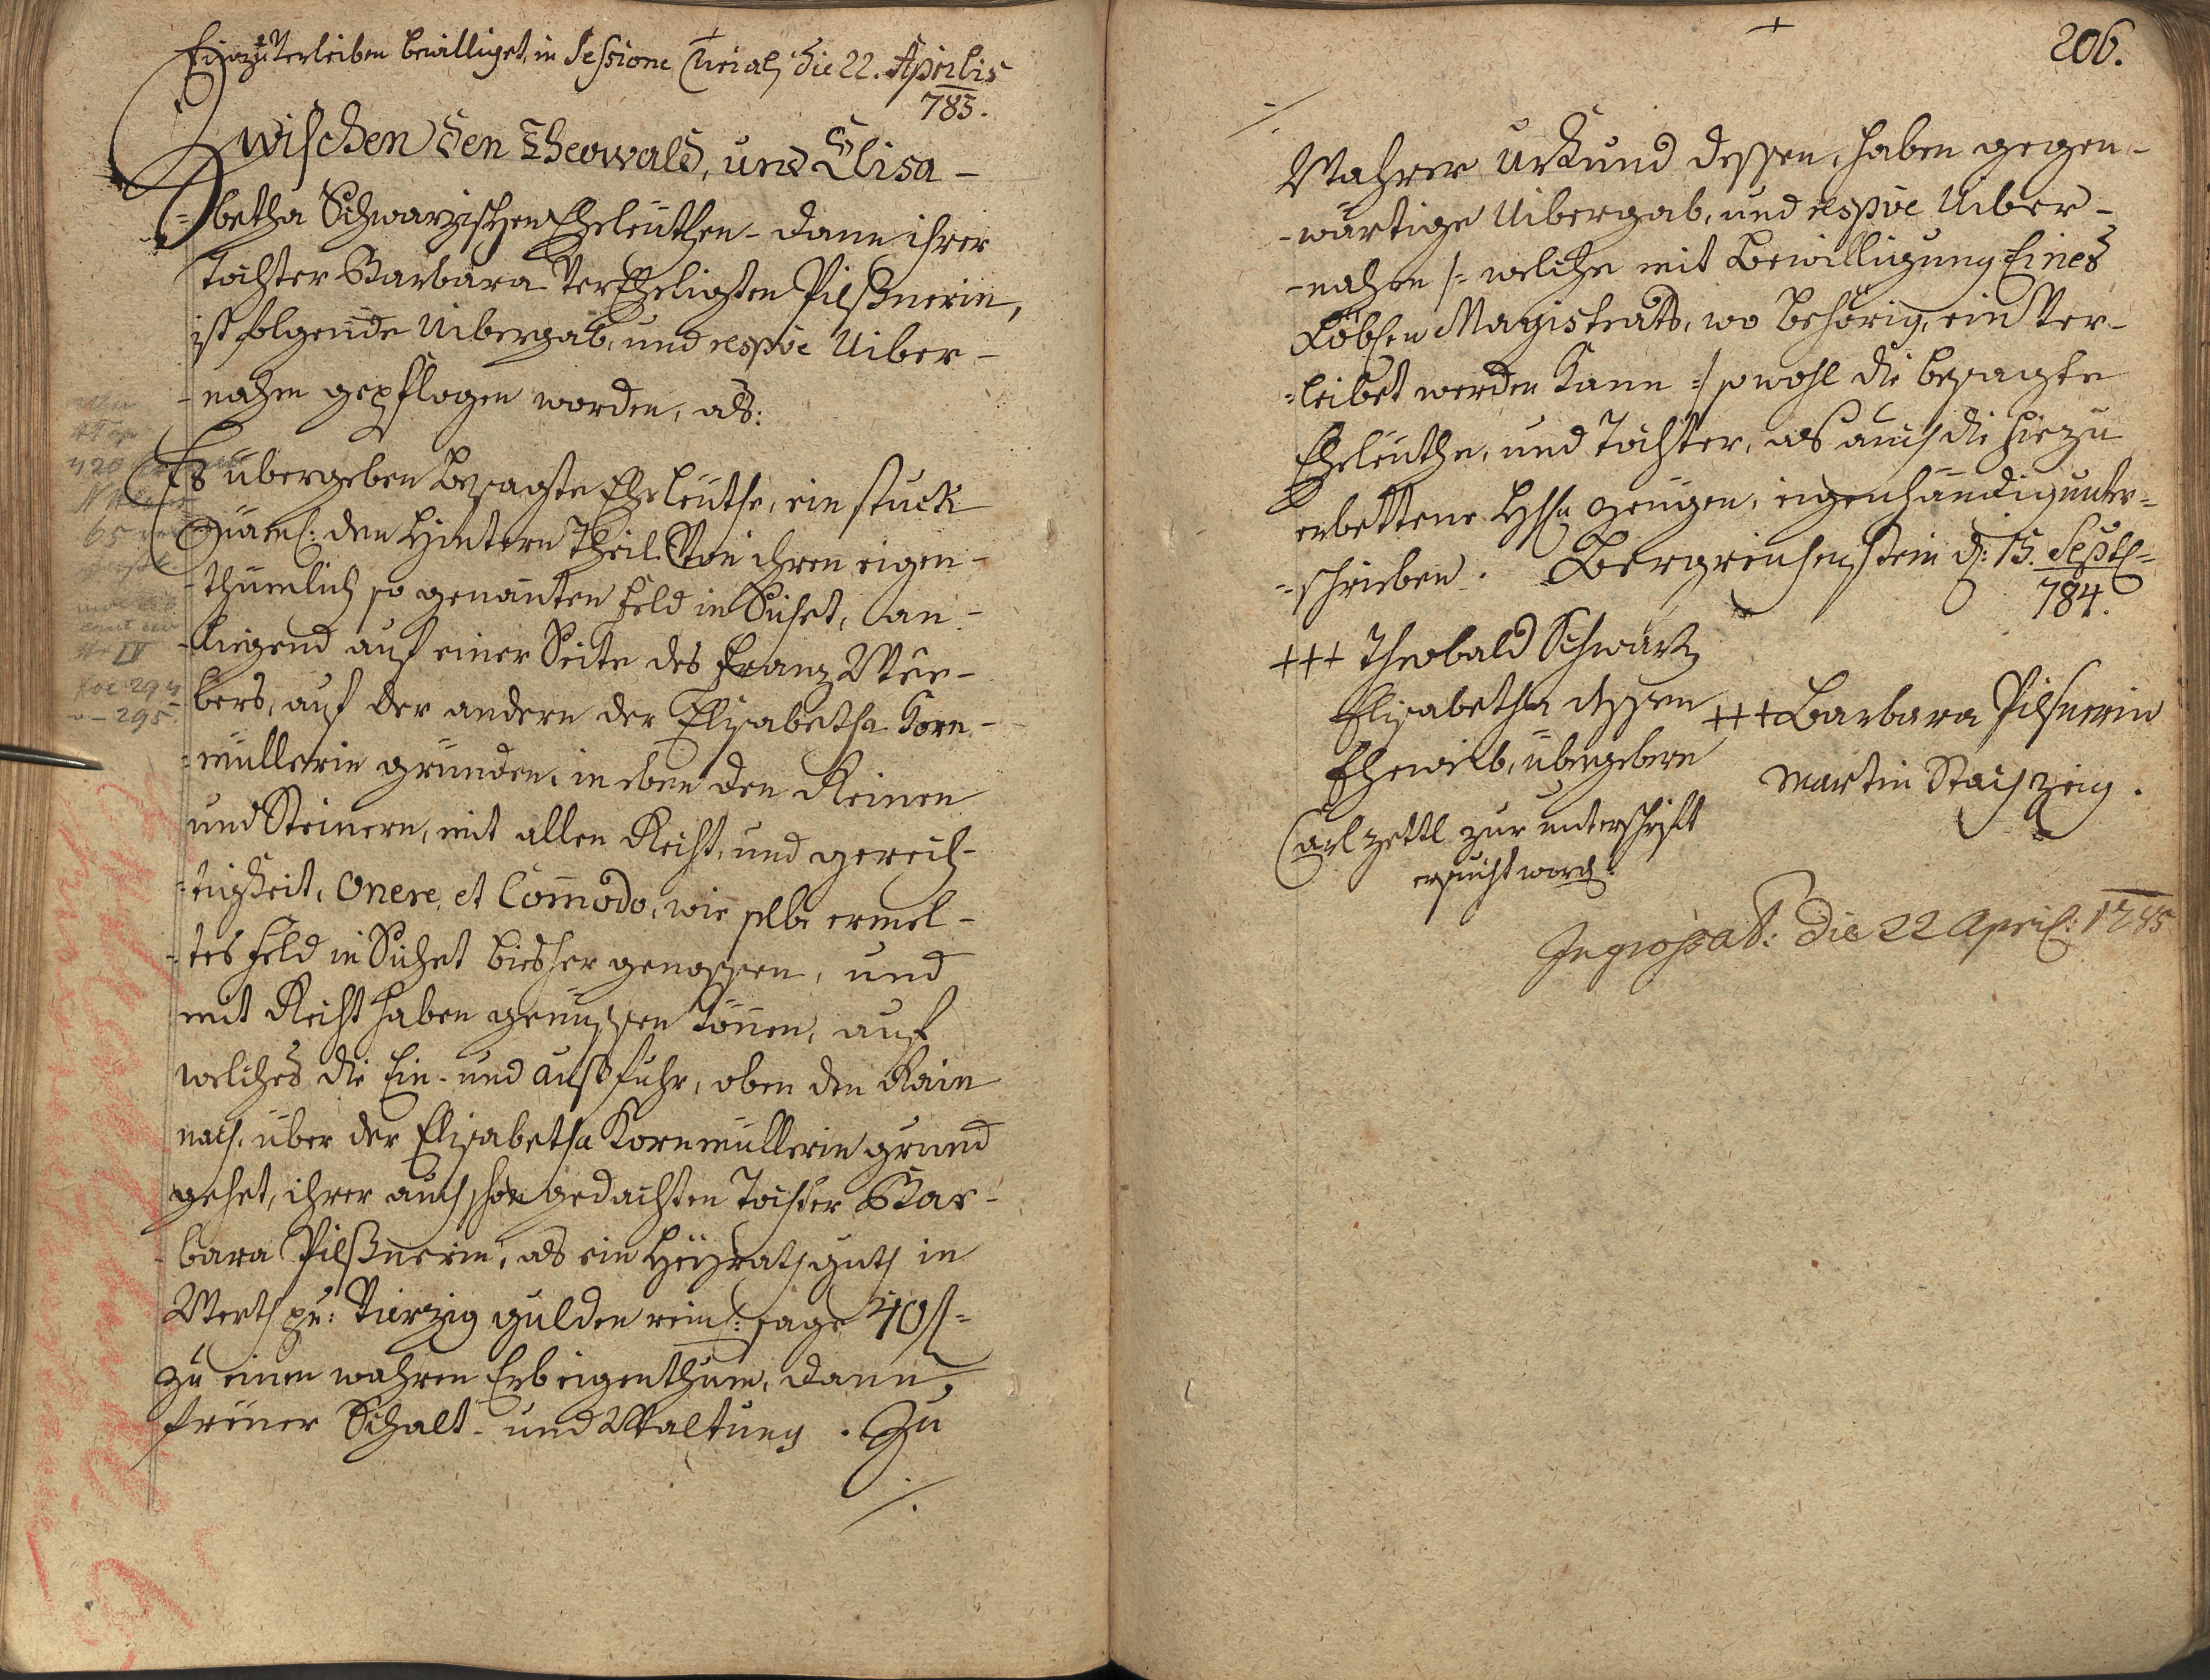 Einzuverleiben bewilliget, in Sessione die 22. Aprilis
785.
Zwischen den Theowald, und Elisa-
betha Schwarzischen Eheleuthen, dann ihrer
Tochter Barbara verEheligten Pilßnerin,
ist folgende Uibergab, und respve Uiber-
-nahm gepflogen worden, als:
Es übergeben besagte Eheleuthe, ein stuck
den Hintern Theil Von ihren eigen-
-thümlich so genanten Feld in Suchet, an-
-liegend auf einer Seite des Franz Wee-
bers, auf der andern der Elisabetha Korn-
-müllerin gründen, in eben den Reinen
und Steinern, mit allen Recht, und gerech-
-tigkeit, Onere, et Com̄odo, wie selbe ermel-
-tes Feld in Suchet biesher genossen, und
mit Recht haben genüssen können, auf
welches die Ein- und Außfuhr, oben den Rain
nach, über der Elisabetha Kornmüllerin grund
gehet, ihrer auch schon gedachten Tochter Bar-
bara Pilßnerin, als ein Heyrathguth in
Werth pr: Vierzig gulden rein: sage 40 fl-
zu einen wahren Erbeigenthum, dann
freuer Schalt- und Waltung. Zu
/.
420
65
IV
foe 294
295
206.
/.
Wahrer Urkund dessen, haben gegen-
-wärtige Uibergab, und respve Uiber-
-nahm /: welche mit Bewilligung Eines
Löbhen Magistrats, wo behörig, ein Ver-
-leibet werden kann :/ sowohl die besagte
Eheleuthe, und Tochter, als auch die hiezu
erbettene Hh: Zeugen, eigenhändig unter-
-schrieben. Bergreichenstein d: 15. Sept:
784.
+++ Theobald Schwartz
Elisabetha dessen
Eheweib, übergebere
Carl Zettl zur unterschrift
ersucht word:
+++ Barbara Pilsnerin
Martin Stach Zeig.
Ingrossat: die 22 April: 1785